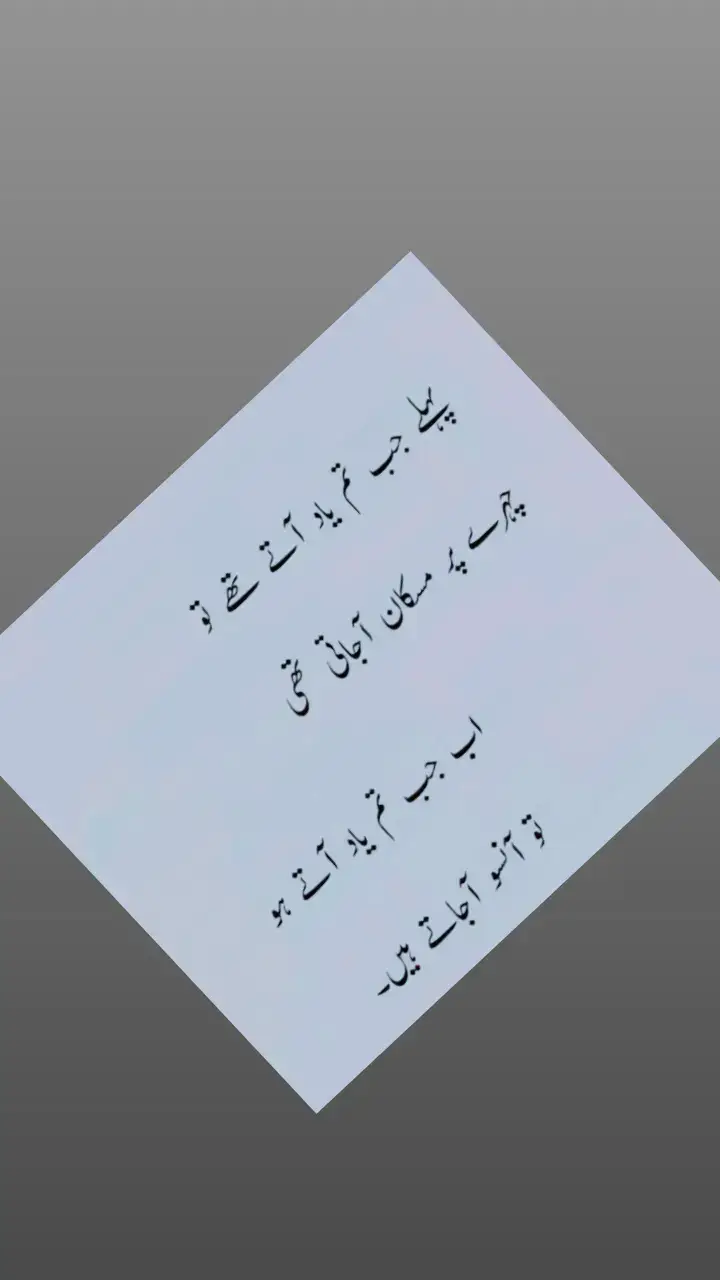 پہلے جب تم یاد آتے تھے تو
چہرے پر مسکان آجاتی تھی
اب جب تم یاد آتے ہو
تو آنسو آجاتے ہیں۔